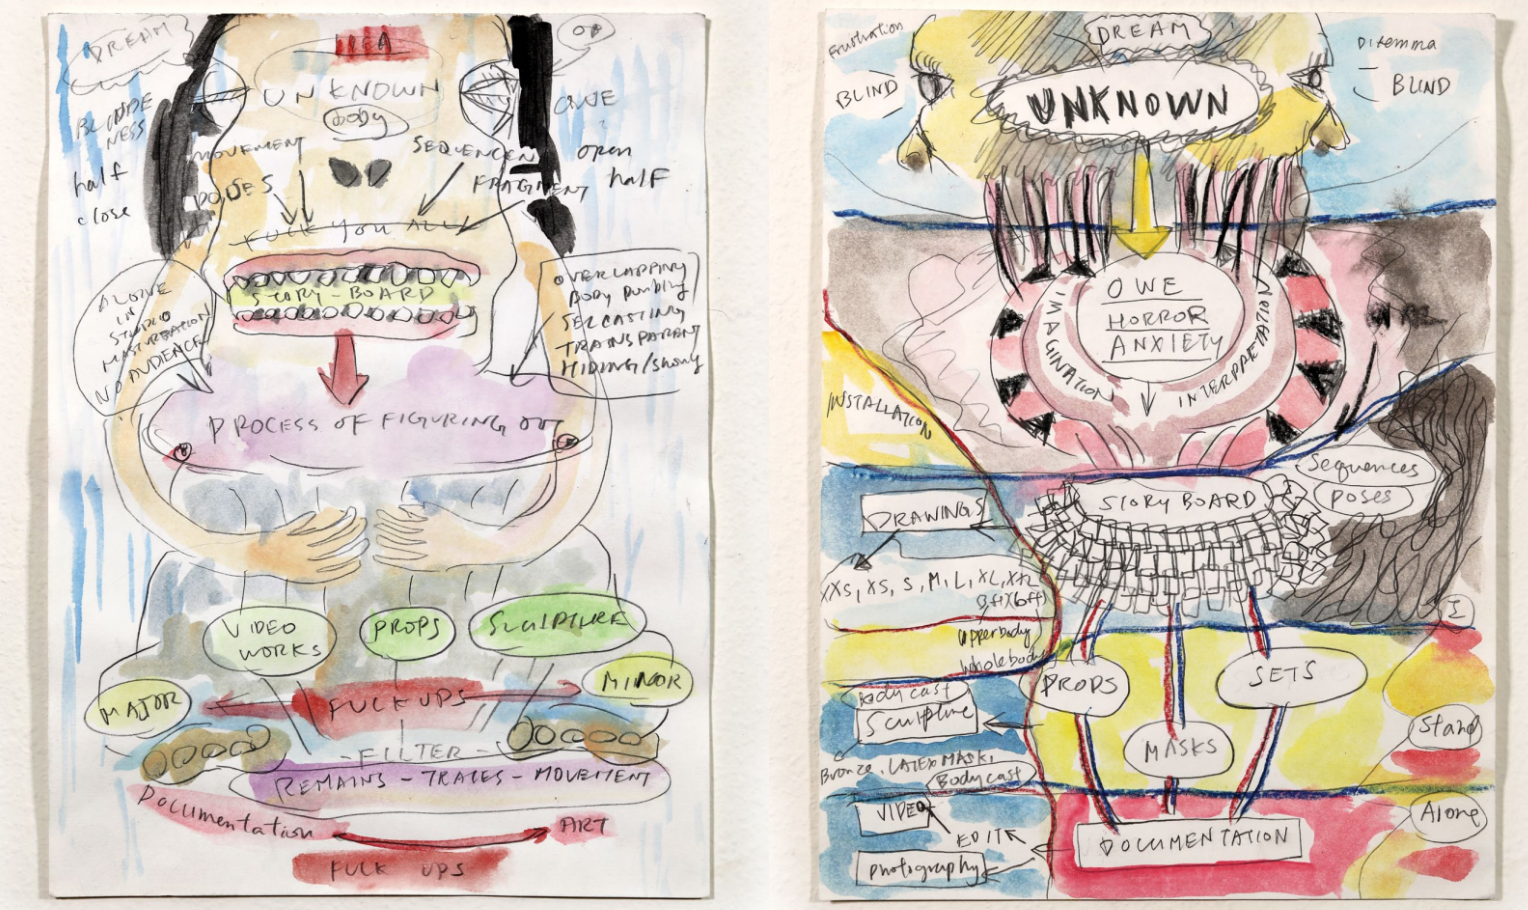 DREAM
IDEA
UNKNOWN
body
half
close
MOVEMENT
SEQUENCEN
open
half
FRAGMENT
FUCK YOU ALL
STORY-BOARD
ALONE
IN
STUDIO
MASTURBATION
NO AUDIENCE
OVERLAPPING
BODY
TRANSPARANT
HIDING/Showing
PROCESS OF FIGURING OUT
VIDEO
WORKS
PROPS
SCULPTURE
MAJOR
FUCK UPS
MINOR
-FILTER-
REMAINS - TRACES - MOVEMENT
DOCUMENTATION
ART
FUCK UPS
Frustration
DREAM
Dilemma
BLIND
BLIND
UNKNOWN
OWE
HORROR
ANXIETY
IMAGINATION
INTERPRETATION
INSTALLATION
Sequences
poses
STORY BOARD
DRAWINGS
XXS, XS, S, M, L, XL, XXL
upperbody
wholebody
I
PROPS
SETS
Body cast
Sculpture
Stand
MASKS
Bronze, LATEX MASK,
Bodycast
VIDEO
EDIT
Alone
DOCUMENTATION
photography